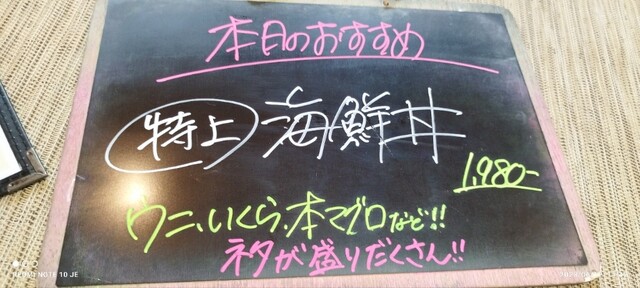 本日のおすすめ
特上 海鮮丼
1,980-
ウニ、いくら、本マグロなど!!
ネタが盛りだくさん!!
NOTE 10 JE